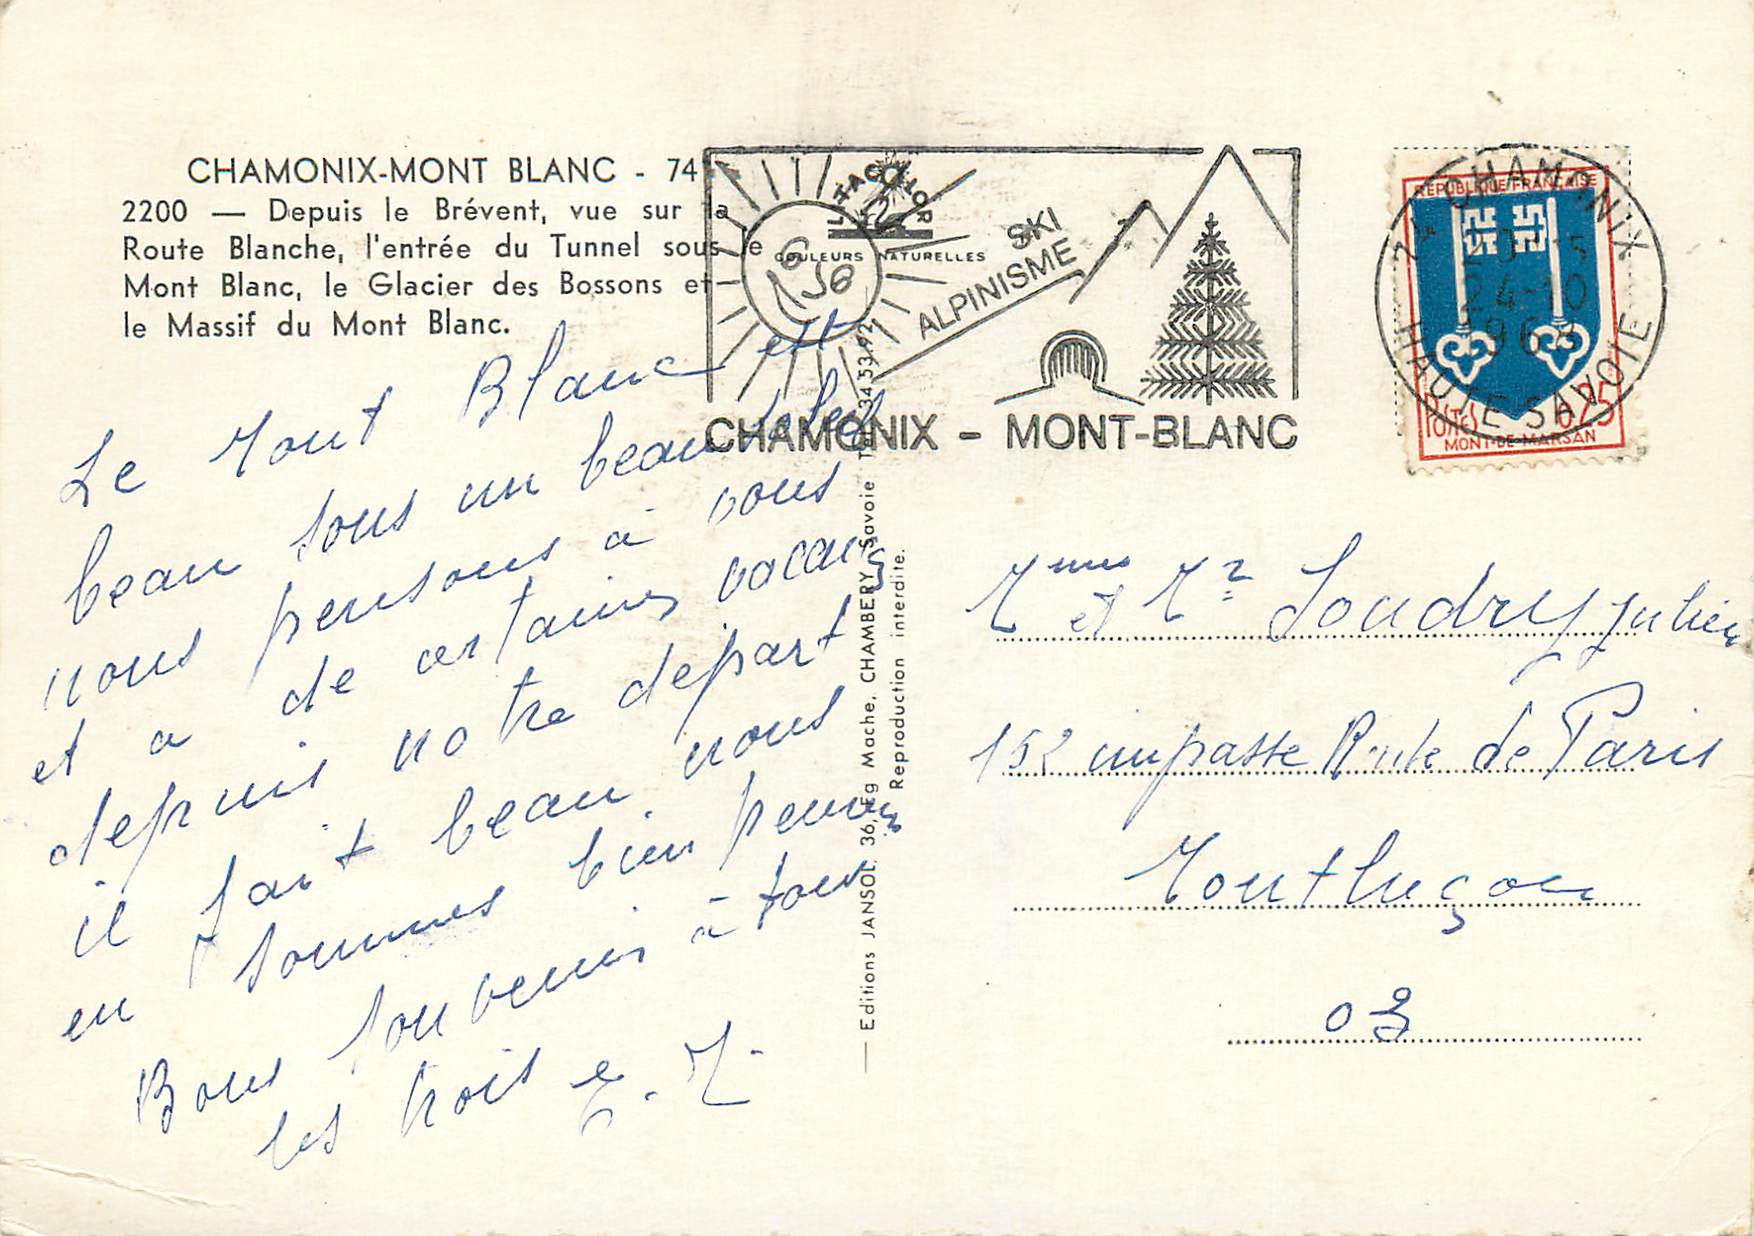 CHAMONIX-MONT BLANC - 74
2200 — Depuis le Brévent, vue sur la
Route Blanche, l'entrée du Tunnel sous le
Mont Blanc, le Glacier des Bossons et
le Massif du Mont Blanc.
LITACOLOR
COULEURS NATURELLES
SKI
ALPINISME
CHAMONIX - MONT-BLANC
74 CHAMONIX
24-10
1968
HAUTE SAVOIE
REPUBLIQUE FRANÇAISE
POSTES 0,25
MONT-DE-MARSAN
Le Mont Blanc est
beau sous un beau soleil
nous pensons à vous
et a de certaines vacances
depuis notre depart
il fait beau nous
en sommes bien
Bons souvenirs à tous
les trois
— Editions JANSOL, 36, Fg Mache, CHAMBERY, Savoie Tél. 34.53.92
Reproduction interdite.
Mme et Mr Soudry Julien
152 impasse Route de Paris
Montluçon
03